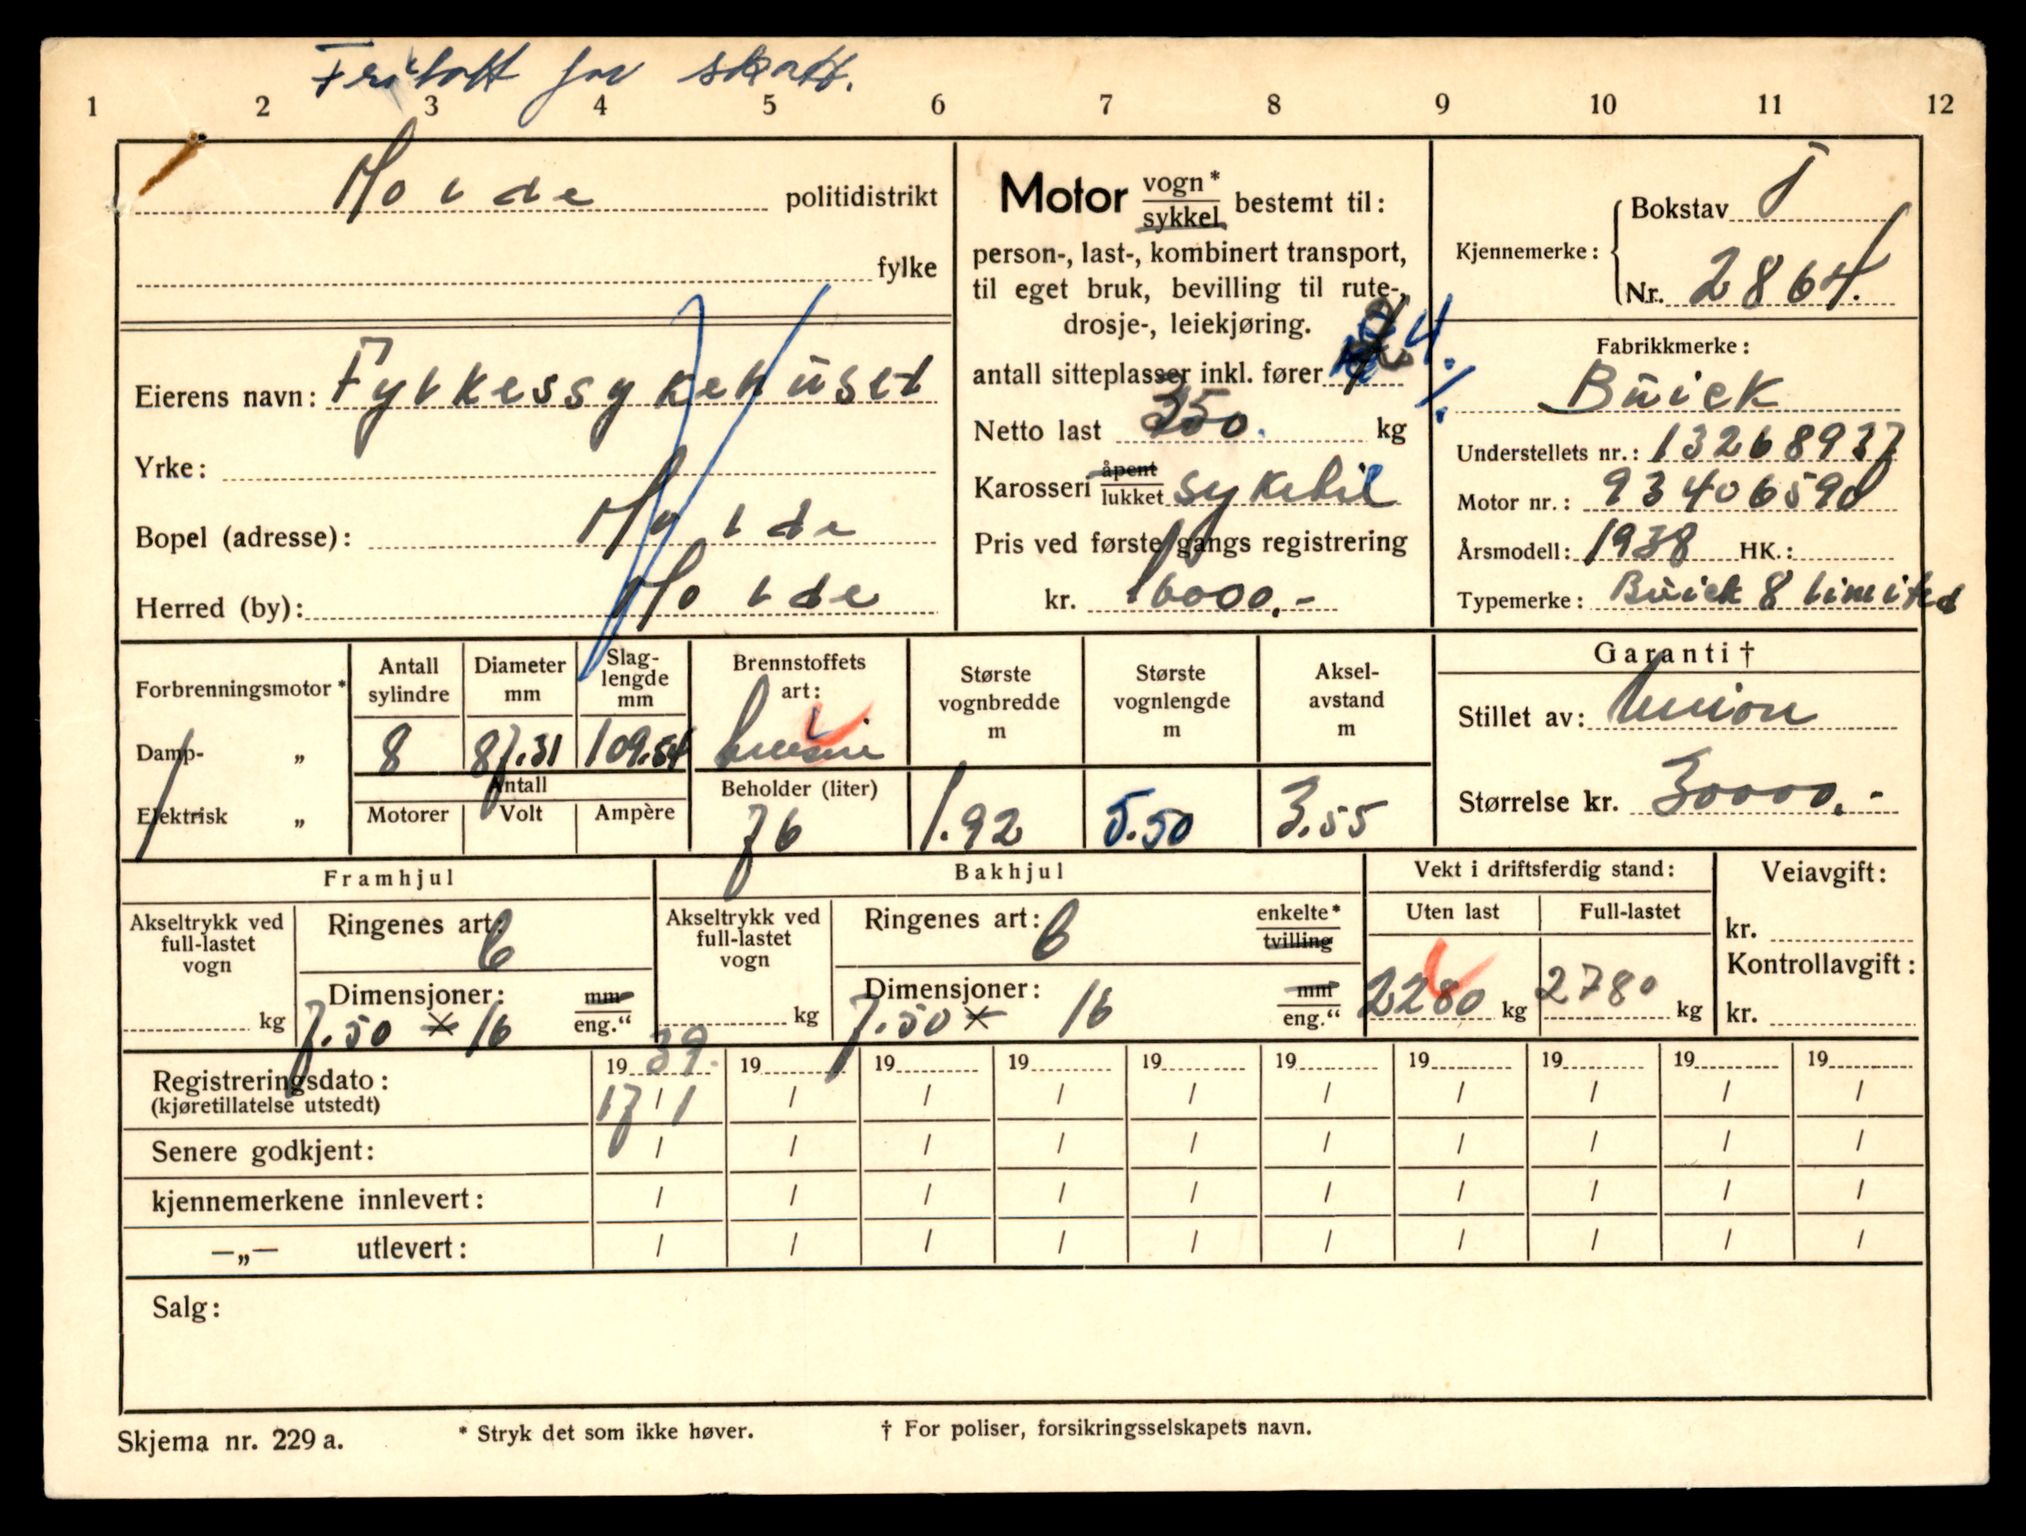 Fritatt for skatt.
1 2 3 4 5 6 7 8 9 10 11 12
Molde politidistrikt
fylke
Eierens navn: Fylkessykehuset
Yrke:
Bopel (adresse): Molde
Herred (by): Molde
Motor vogn* sykkel bestemt til:
person-, last-, kombinert transport,
til eget bruk, bevilling til rute-,
drosje-, leiekjøring.
antall sitteplasser inkl. fører 4.
Netto last 350. kg
Karosseri åpent lukket sykebil
Pris ved første gangs registrering
kr. 16000.-
Kjennemerke: Bokstav T
Nr. 2864.
Fabrikkmerke:
Buick
Understellets nr.: 13268937
Motor nr.: 93406590
Årsmodell: 1938 HK.:
Typemerke: Buick 8 limited
Forbrenningsmotor *
Damp- „
Elektrisk „
Antall sylindre
8
Diameter mm
87.31
Slaglengde mm
109.54
Antall
Motorer Volt Ampère
Brennstoffets art:
bensin
Beholder (liter)
76
Største vognbredde m
1.92
Største vognlengde m
5.50
Aksel-avstand m
3.55
Garanti †
Stillet av: Union
Størrelse kr. 30000.-
Framhjul
Akseltrykk ved full-lastet vogn
kg
Ringenes art: 6
Dimensjoner: mm eng."
7.50 × 16
Bakhjul
Akseltrykk ved full-lastet vogn
kg
Ringenes art: 6 enkelte* tvilling
Dimensjoner: mm eng."
7.50 × 16
Vekt i driftsferdig stand:
Uten last Full-lastet
2280 kg 2780 kg
Veiavgift:
kr.
Kontrollavgift:
kr.
Registreringsdato: 19 39. 19 19 19 19 19 19 19 19 19
(kjøretillatelse utstedt) 17 / 1 / / / / / / / / /
Senere godkjent: / / / / / / / / / /
kjennemerkene innlevert: / / / / / / / / / /
—„— utlevert: / / / / / / / / / /
Salg:
Skjema nr. 229 a. * Stryk det som ikke høver. † For poliser, forsikringsselskapets navn.